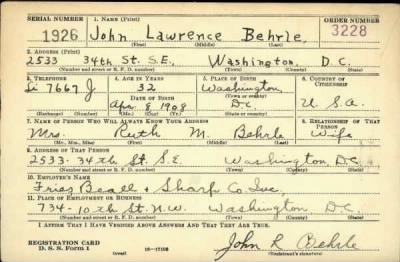 SERIAL NUMBER 1. NAME (Print) ORDER NUMBER
1926 John Lawrence Behrle 3228
(First) (Middle) (Last)
2. ADDRESS (Print)
2533 34th St. S.E., Washington, D.C.
(Number and street or R. F. D. number) (Town) (County) (State)
3. TELEPHONE 4. AGE IN YEARS 5. PLACE OF BIRTH 6. COUNTRY OF CITIZENSHIP
Li 7667 J 32 Washington
DATE OF BIRTH
Apr 8 1908 D.C. U.S.A.
(Exchange) (Number) (Mo.) (Day) (Yr.) (Town or county) (State or country)
7. NAME OF PERSON WHO WILL ALWAYS KNOW YOUR ADDRESS 8. RELATIONSHIP OF THAT PERSON
Mrs. Ruth M. Behrle Wife
(Mr., Mrs., Miss) (First) (Middle) (Last)
9. ADDRESS OF THAT PERSON
2533-34th St. S.E. Washington, D.C.
(Number and street or R. F. D. number) (Town) (County) (State)
10. EMPLOYER'S NAME
Fries Beall & Sharp Co Inc,
11. PLACE OF EMPLOYMENT OR BUSINESS
734-10th St. N.W. Washington, D.C.
(Number and street or R. F. D. number) (Town) (County) (State)
I AFFIRM THAT I HAVE VERIFIED ABOVE ANSWERS AND THAT THEY ARE TRUE.
REGISTRATION CARD
D. S. S. Form 1 (over) John R Behrle
(Registrant's signature)